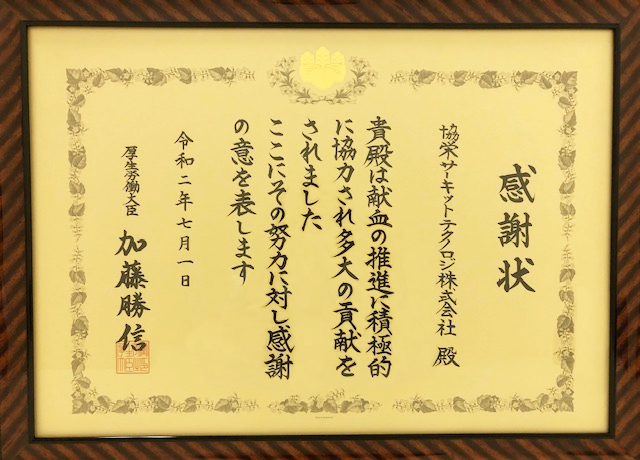 感謝状
協栄サーキットテクノロジ株式会社 殿
貴殿は献血の推進に積極的
に協力され多大の貢献を
されました
ここにその努力に対し感謝
の意を表します
令和二年七月一日
厚生労働大臣 加藤勝信